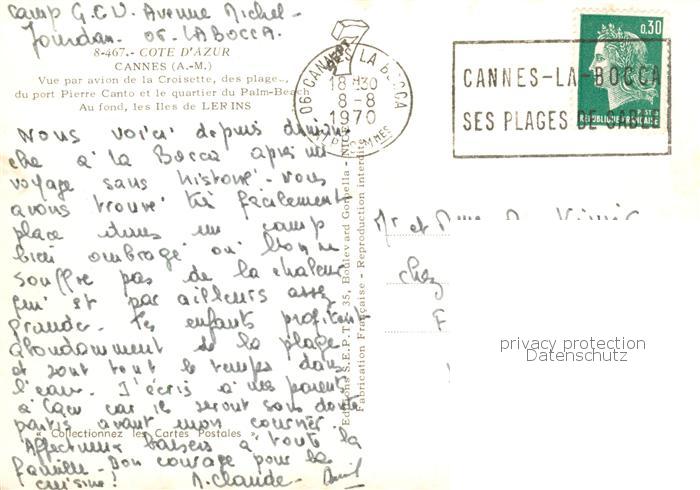 Camp G.C.U. Avenue Michel-
Jourdan. 06. LA BOCCA.
8-467.- COTE D'AZUR
CANNES (A.-M.)
Vue par avion de la Croisette, des plages,
du port Pierre Canto et le quartier du Palm-Beach
Au fond, les Iles de LERINS
Nous voici depuis diman-
che à la Bocca après un
voyage sans histoire. Nous
avons trouvé très facilement
place dans un camp
bien ombragé où l'on ne
souffre pas de la chaleur
qui est par ailleurs assez
grande. Les enfants profitent
abondamment de la plage
et sont tout le temps dans
l'eau. J'écris à mes parents
à Caen car ils seront sans doute
partis avant mon courrier.
"Collectionnez les Cartes Postales"
Affectueux baisers à toute la
famille. Bon courage pour la
cuisine! M. Claude.
Editions S.E.P.T. 35, Boulevard Gorbella - NICE
Fabrication Française - Reproduction interdite
06 CANNES LA BOCCA
18H30
8-8
1970
ALPES MMES
CANNES-LA-BOCCA
SES PLAGES DE SABLE
0,30
POSTES
REPUBLIQUE FRANÇAISE
Mr et Mme
chez
F
privacy protection
Datenschutz